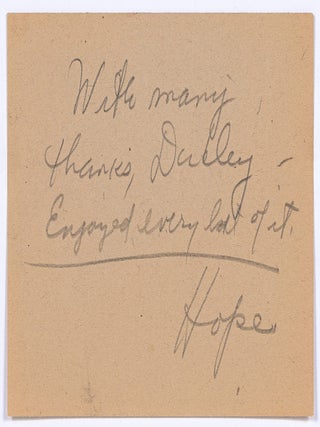 With many
thanks, Dudley –
Enjoyed every bit of it.
Hope